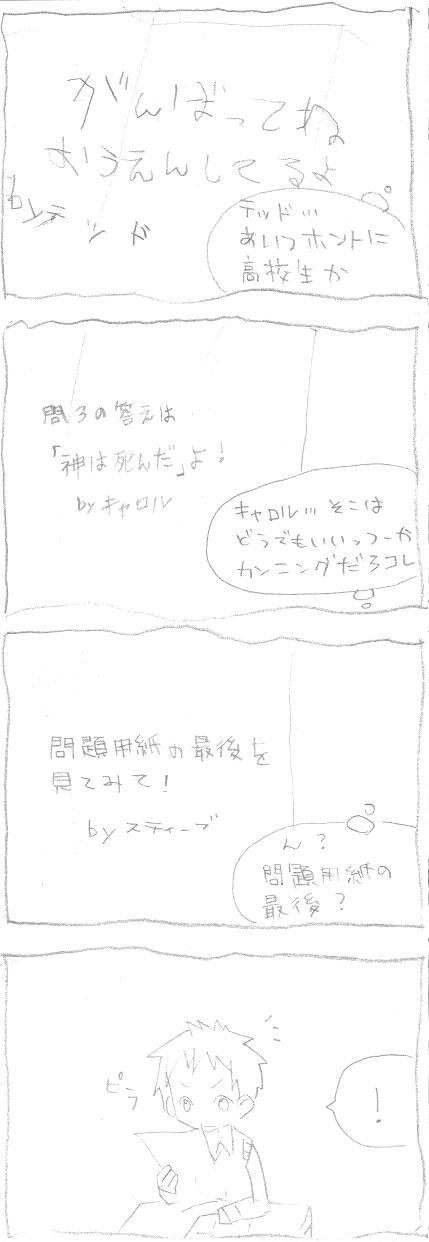 がんばってね
おうえんしてるよ
byテッド
テッド…
あいつホントに
高校生か
問3の答えは
「神は死んだ」よ!
byキャロル
キャロル…そこは
どうでもいいっつーか
カンニングだろコレ
問題用紙の最後を
見てみて!
byスティーブ
ん?
問題用紙の
最後?
ピラ
!